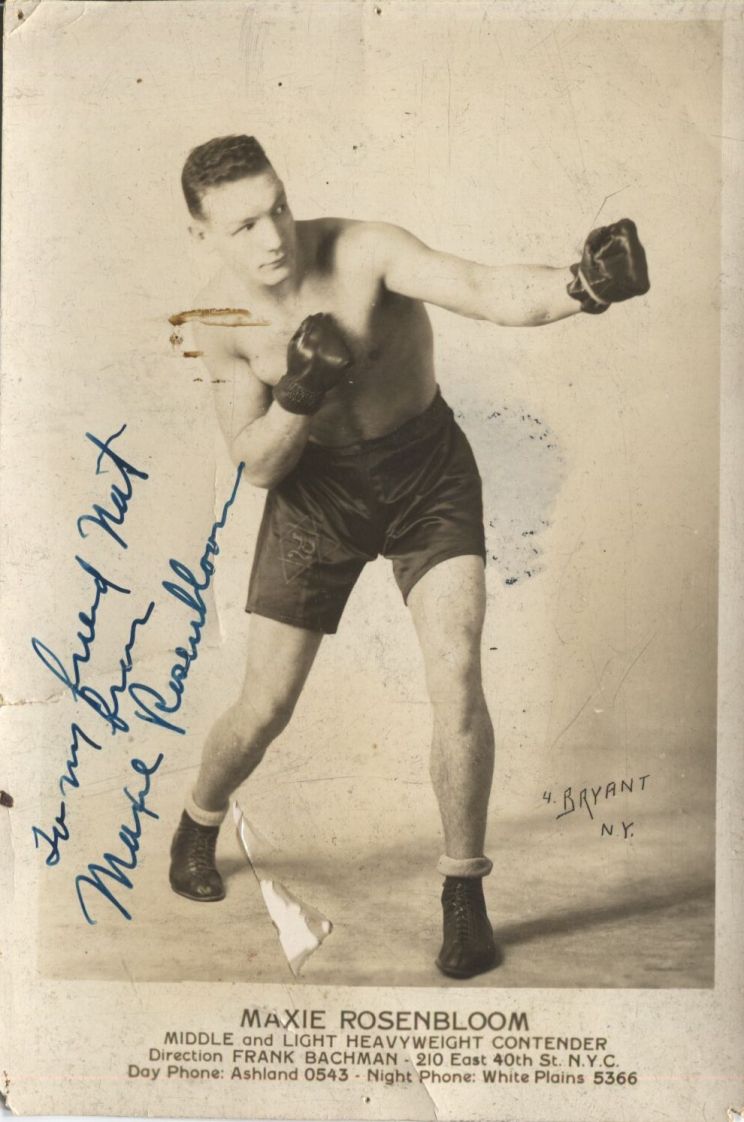 To my friend Nat
from
Maxie Rosenbloom
4. BRYANT
N.Y.
MAXIE ROSENBLOOM
MIDDLE and LIGHT HEAVYWEIGHT CONTENDER
Direction FRANK BACHMAN - 210 East 40th St. N.Y.C.
Day Phone: Ashland 0543 - Night Phone: White Plains 5366